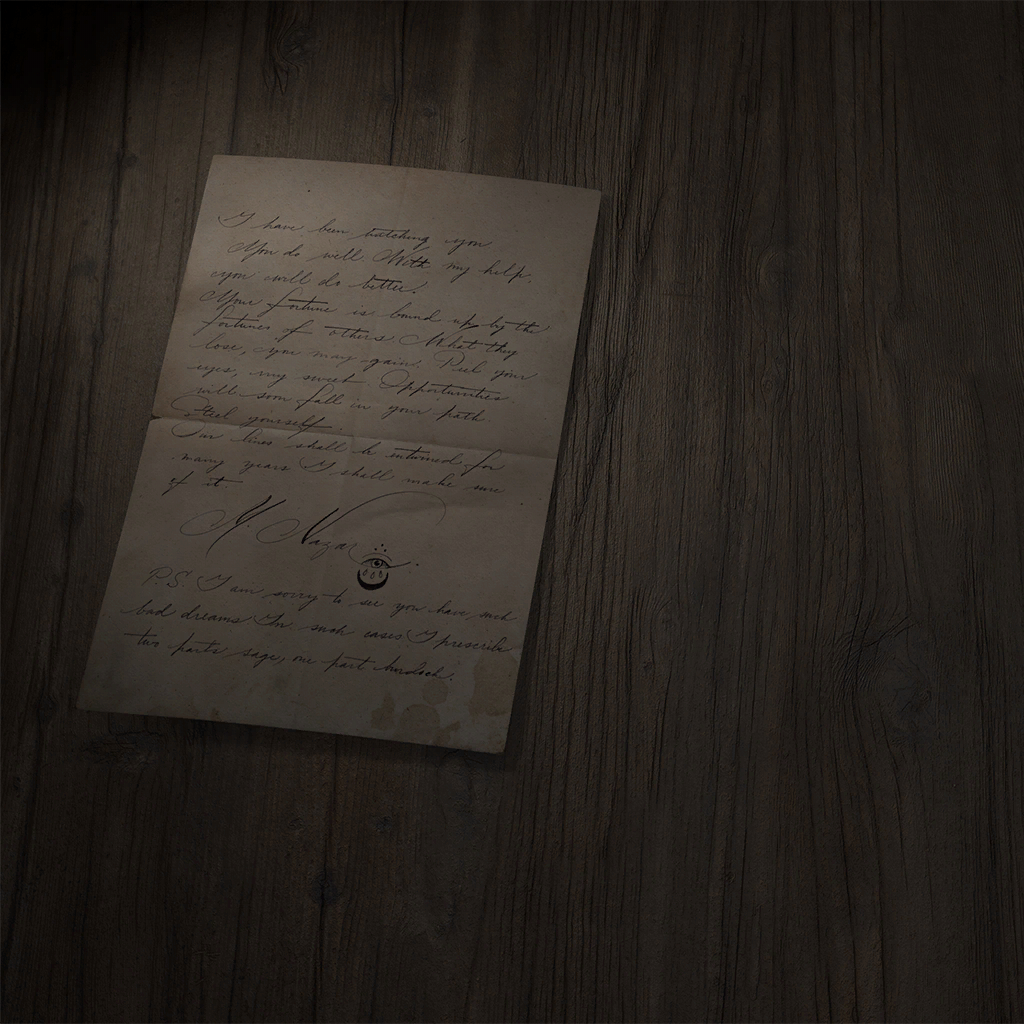 I have been watching you
You do well With my help,
you will do better!
Your fortune is bound up by the
fortunes of others What they
lose, you may gain. Peel your
eyes, my sweet. Opportunities
will soon fall in your path.
Steel yourself.
Our lives shall be entwined for
many years I shall make sure
of it.
M. Nazar
P.S. I am sorry to see you have such
bad dreams In such cases I prescribe
two parts sage, one part burdock.